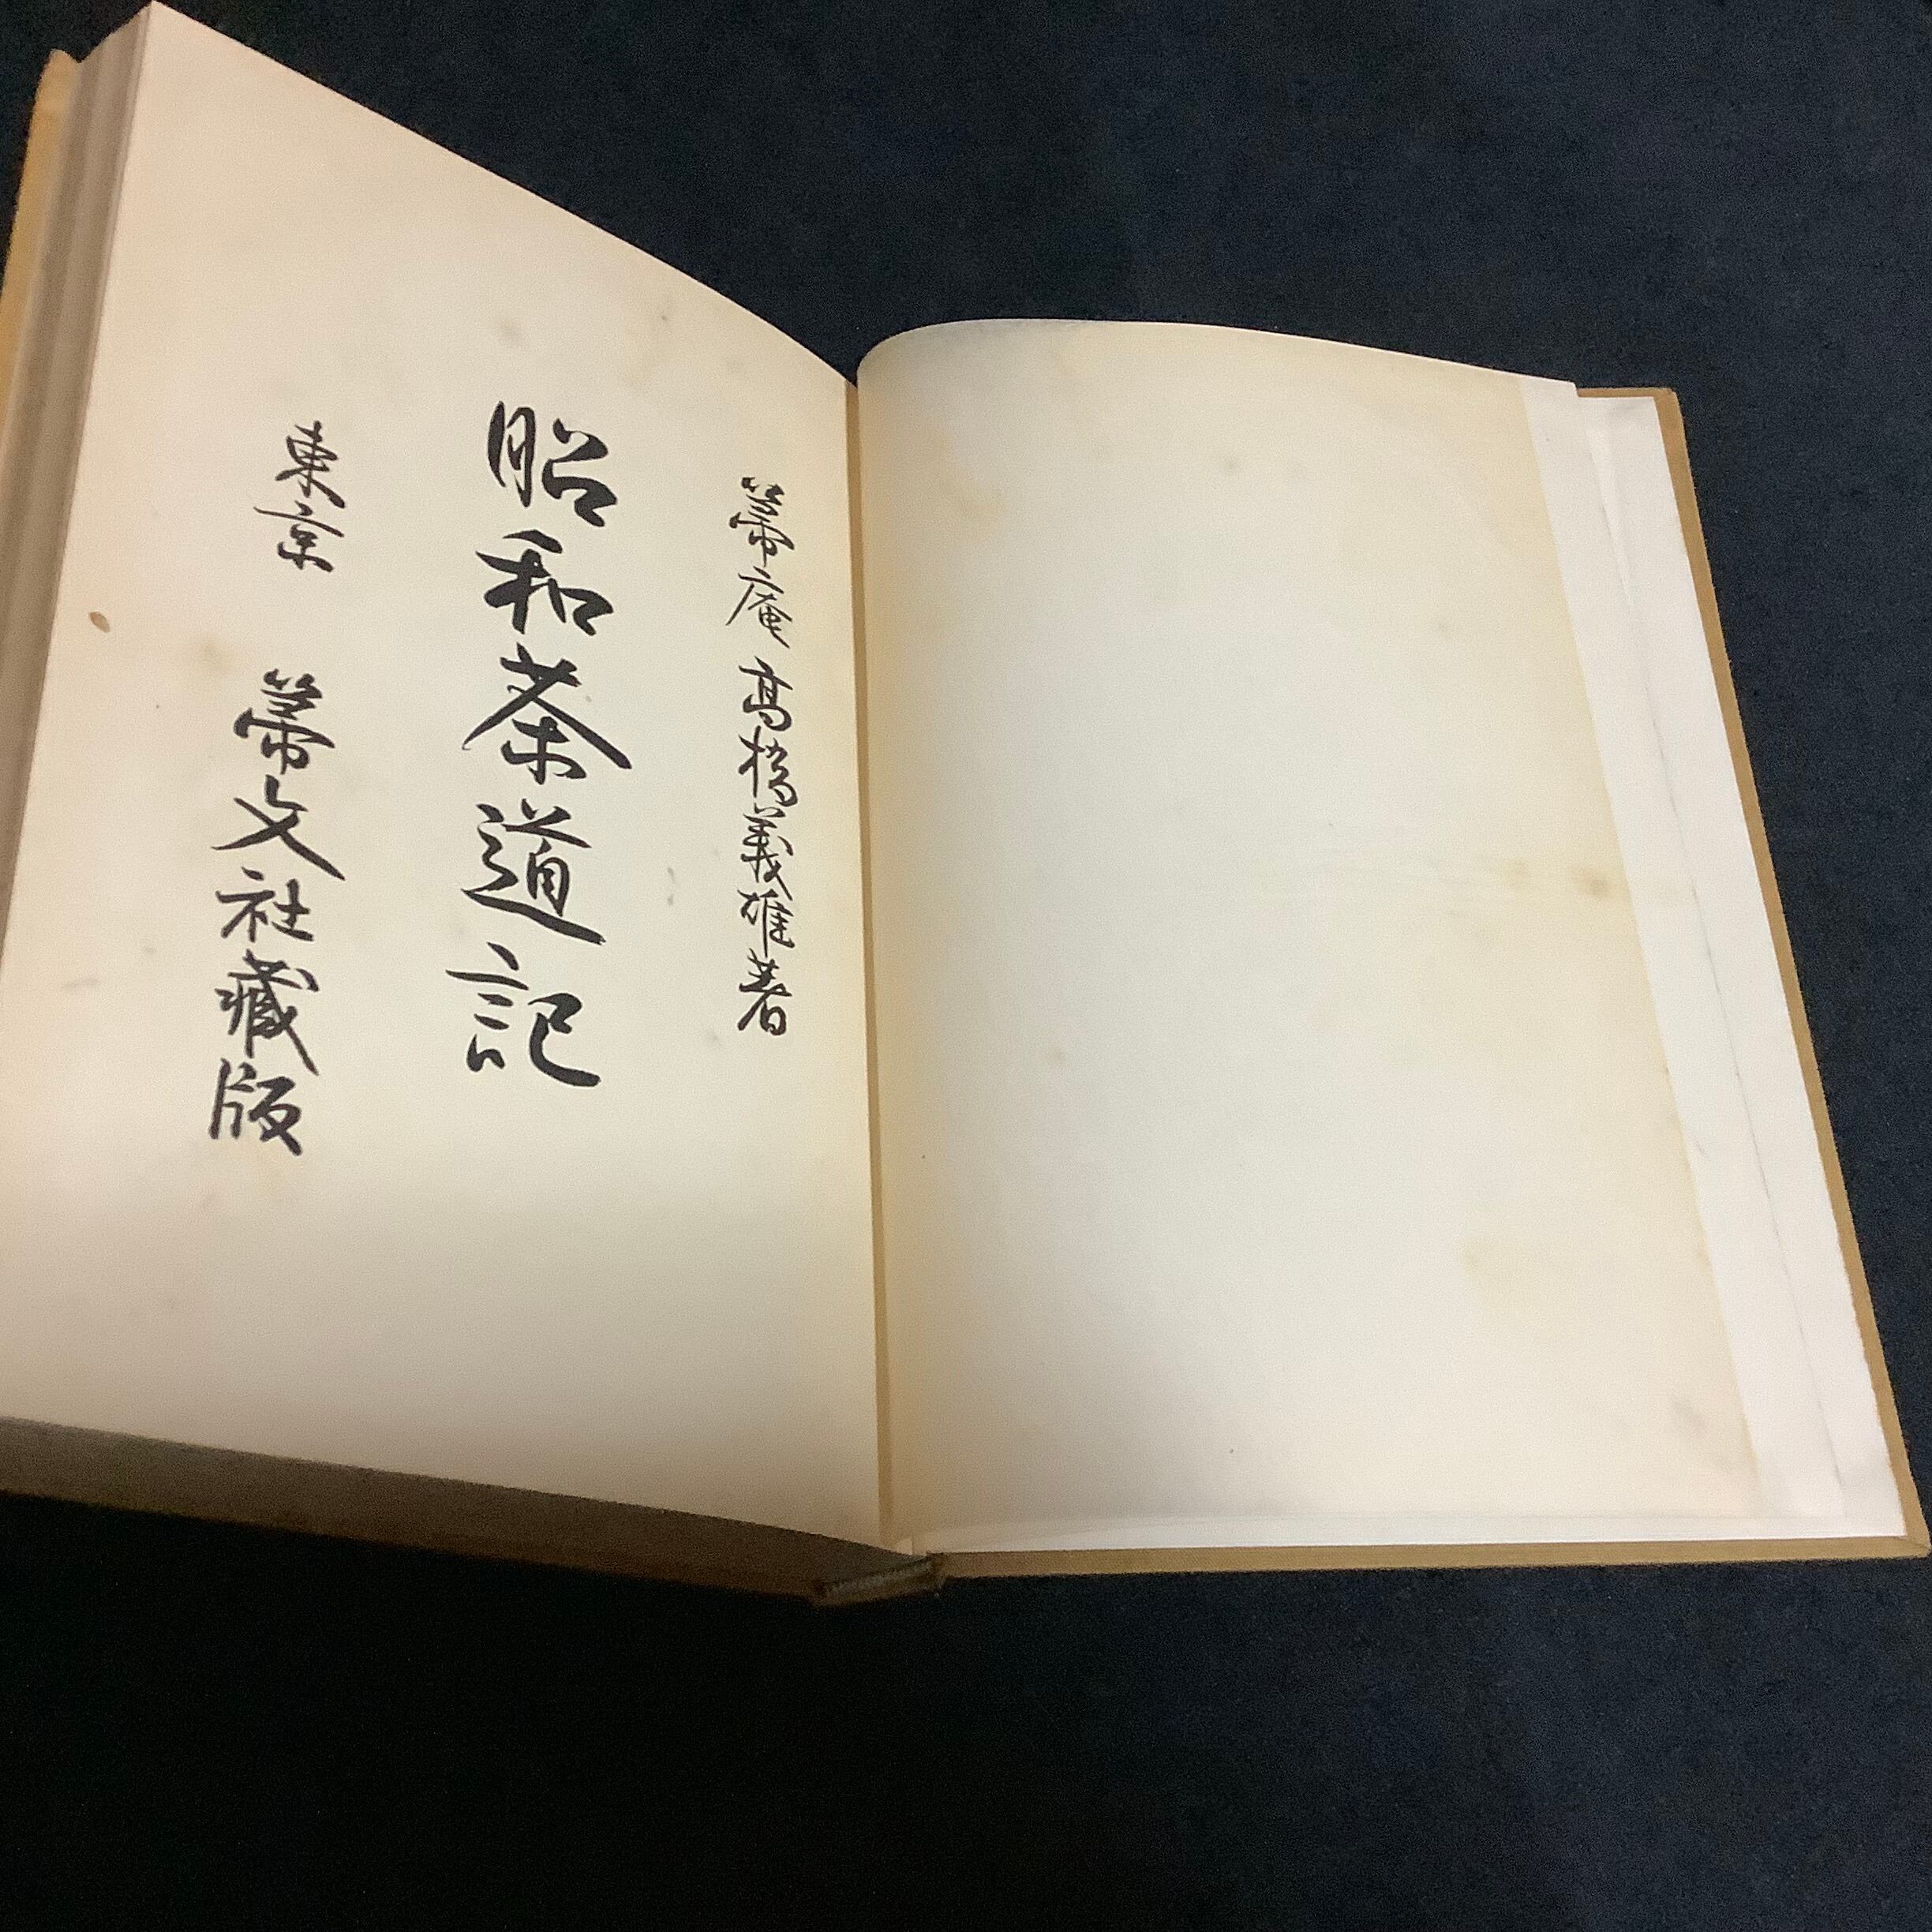 箒庵 高橋義雄著
昭和茶道記
東京 箒文社藏版